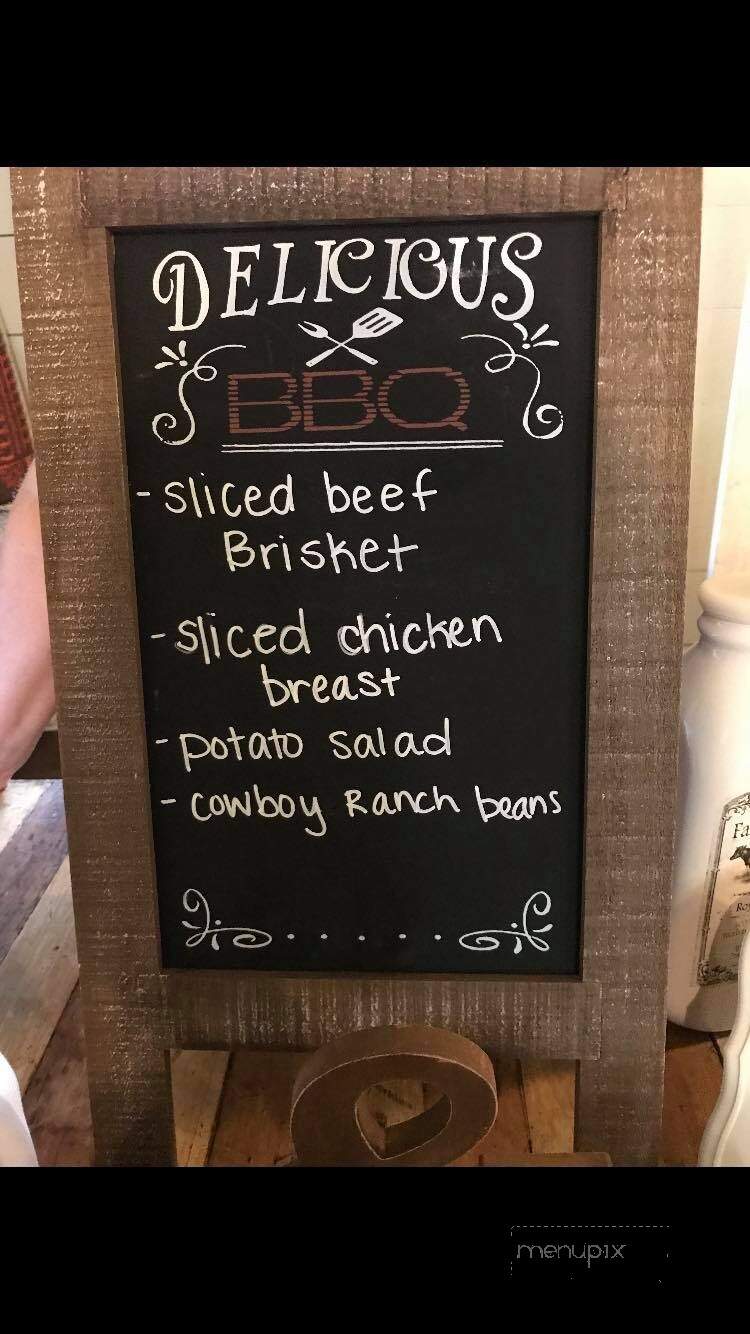 DELICIOUS
BBQ
- sliced beef
Brisket
- sliced chicken
breast
- potato salad
- cowboy Ranch beans
Fa
Ro
menupix